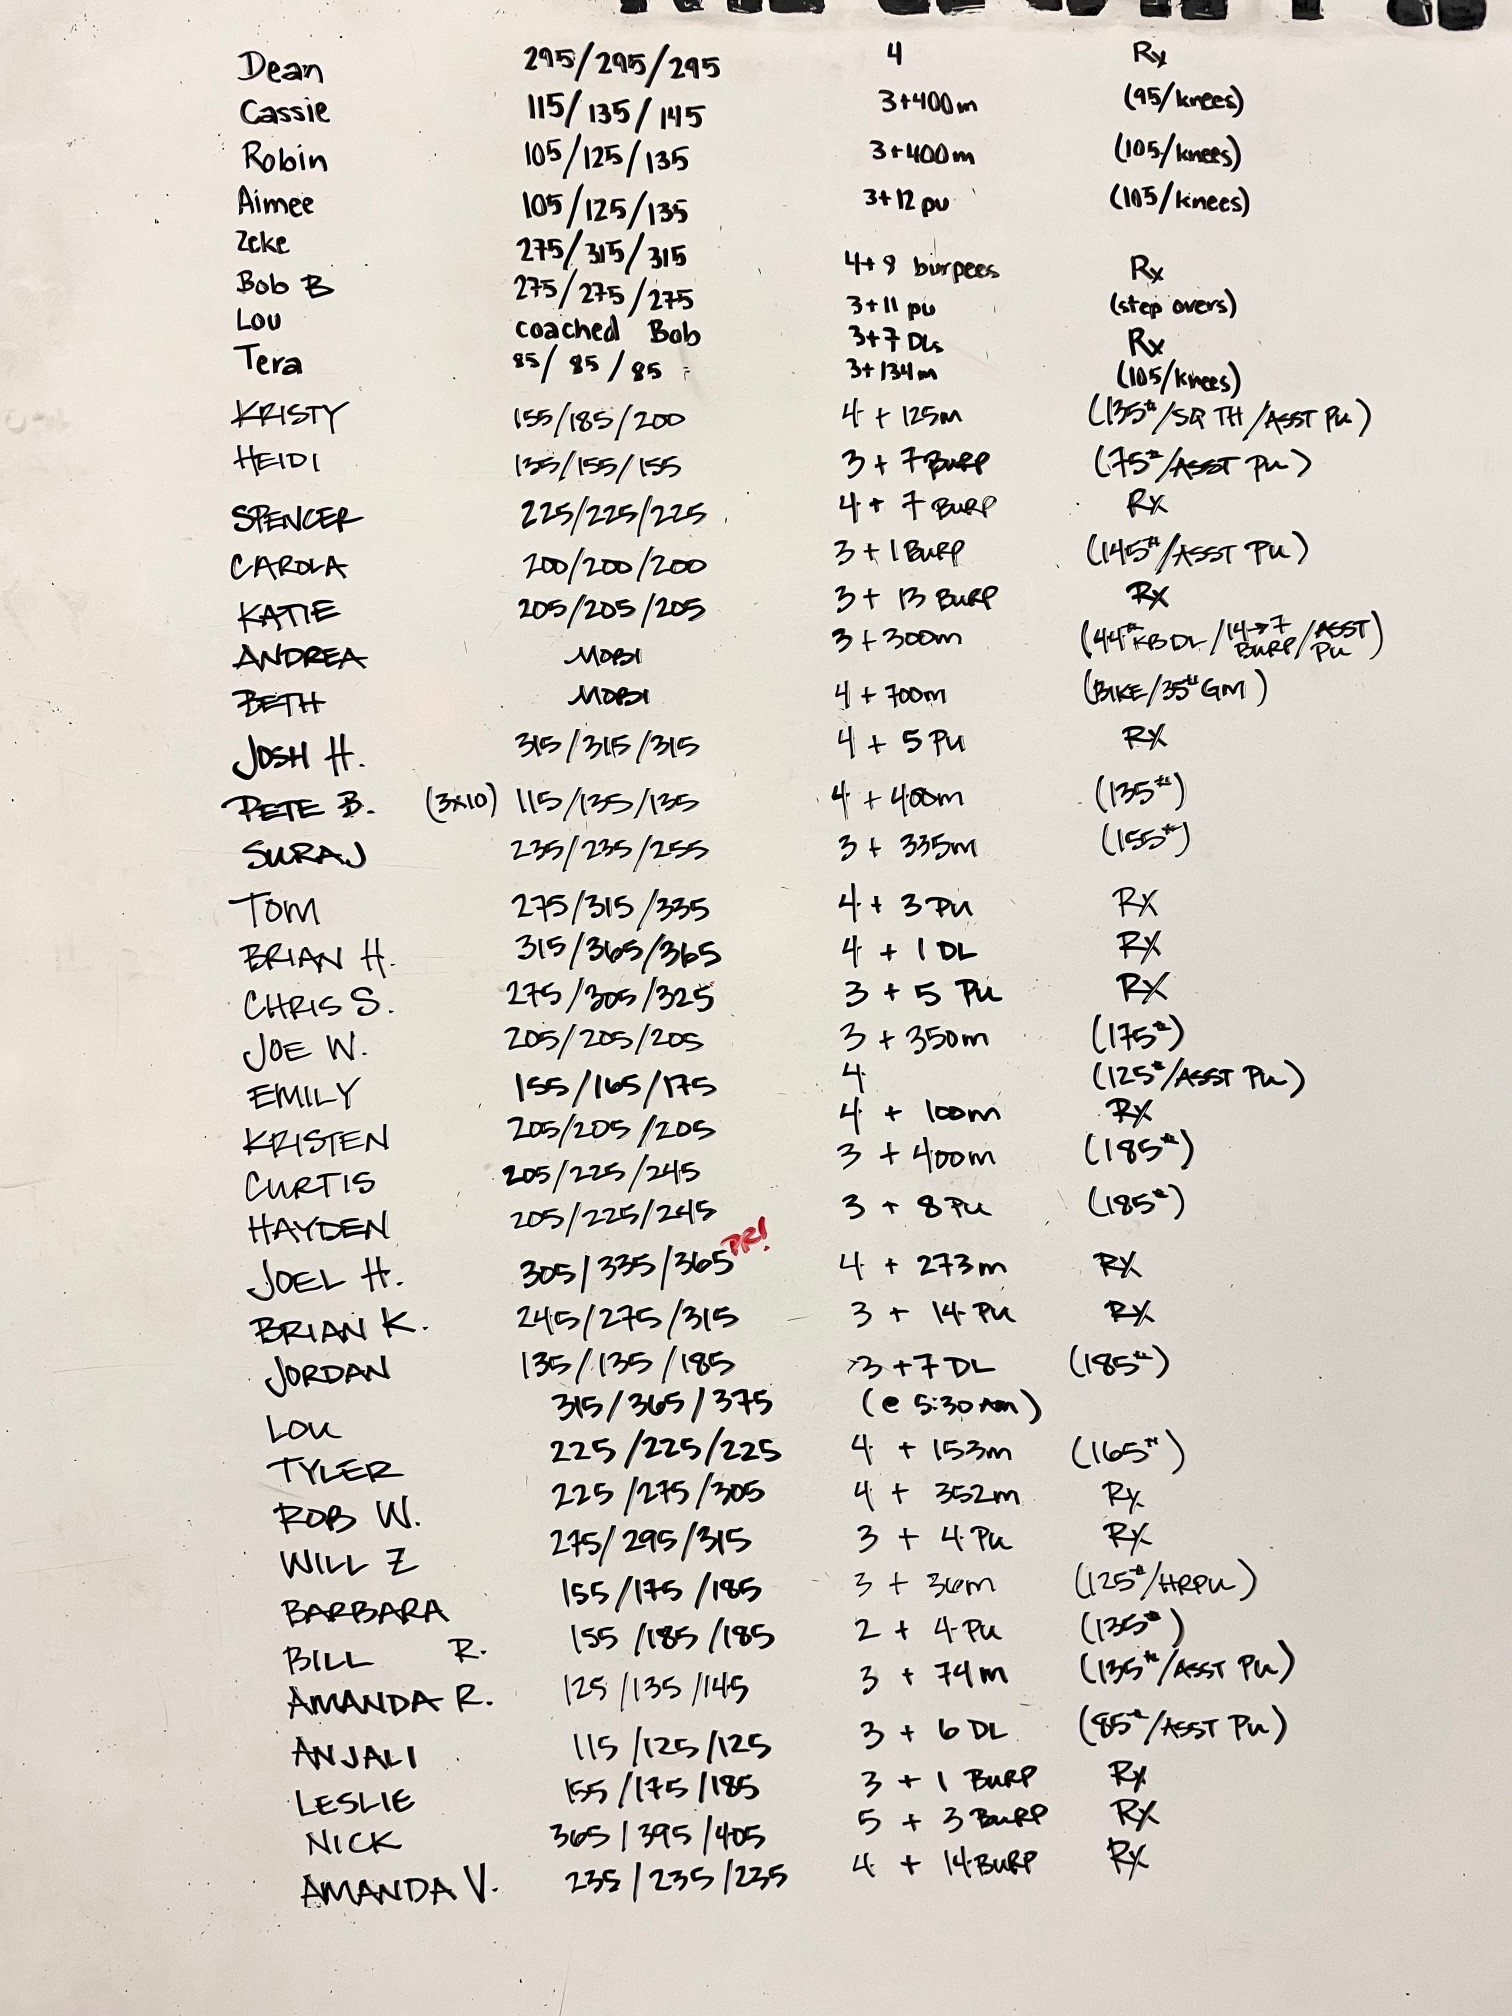 Dean 295/295/295 4 Rx
Cassie 115/135/145 3+400m (95/knees)
Robin 105/125/135 3+400m (105/knees)
Aimee 105/125/135 3+12 pu (105/knees)
Zeke 275/315/315 4+9 burpees Rx
Bob B 275/275/275 3+11 pu (step overs)
Lou coached Bob 3+7 DLs Rx
Tera 85/85/85 3+134m (105/knees)
KRISTY 155/185/200 4 + 125m (135#/SQ TH/ASST PU)
HEIDI 135/155/155 3 + 7 BURP (75#/ASST PU)
SPENCER 225/225/225 4 + 7 BURP RX
CAROLA 200/200/200 3 + 1 BURP (145#/ASST PU)
KATIE 205/205/205 3 + 13 BURP RX
ANDREA MOBI 3 + 300m (44# KB DL/14→7 BURP/ASST PU)
BETH MOBI 4 + 700m (BIKE/35# GM)
JOSH H. 315/315/315 4 + 5 PU RX
PETE B. (3x10) 115/135/135 4 + 400m (135#)
SURAJ 235/235/255 3 + 335m (155#)
TOM 275/315/335 4 + 3 PU RX
BRIAN H. 315/365/365 4 + 1 DL RX
CHRIS S. 275/305/325 3 + 5 PU RX
JOE W. 205/205/205 3 + 350m (175#)
EMILY 155/165/175 4 (125#/ASST PU)
KRISTEN 205/205/205 4 + 100m RX
CURTIS 205/225/245 3 + 400m (185#)
HAYDEN 205/225/245 3 + 8 PU (185#)
JOEL H. 305/335/365 PR! 4 + 273m RX
BRIAN K. 245/275/315 3 + 14 PU RX
JORDAN 135/135/185 3 + 7 DL (185#)
LOU 315/365/375 (@ 5:30 AM)
TYLER 225/225/225 4 + 153m (165#)
ROB W. 225/275/305 4 + 352m RX
WILL Z 275/295/315 3 + 4 PU RX
BARBARA 155/175/185 3 + 36m (125#/HRPU)
BILL R. 155/185/185 2 + 4 PU (135#)
AMANDA R. 125/135/145 3 + 74m (135#/ASST PU)
ANJALI 115/125/125 3 + 6 DL (85#/ASST PU)
LESLIE 155/175/185 3 + 1 BURP RX
NICK 365/395/405 5 + 3 BURP RX
AMANDA V. 235/235/235 4 + 14 BURP RX